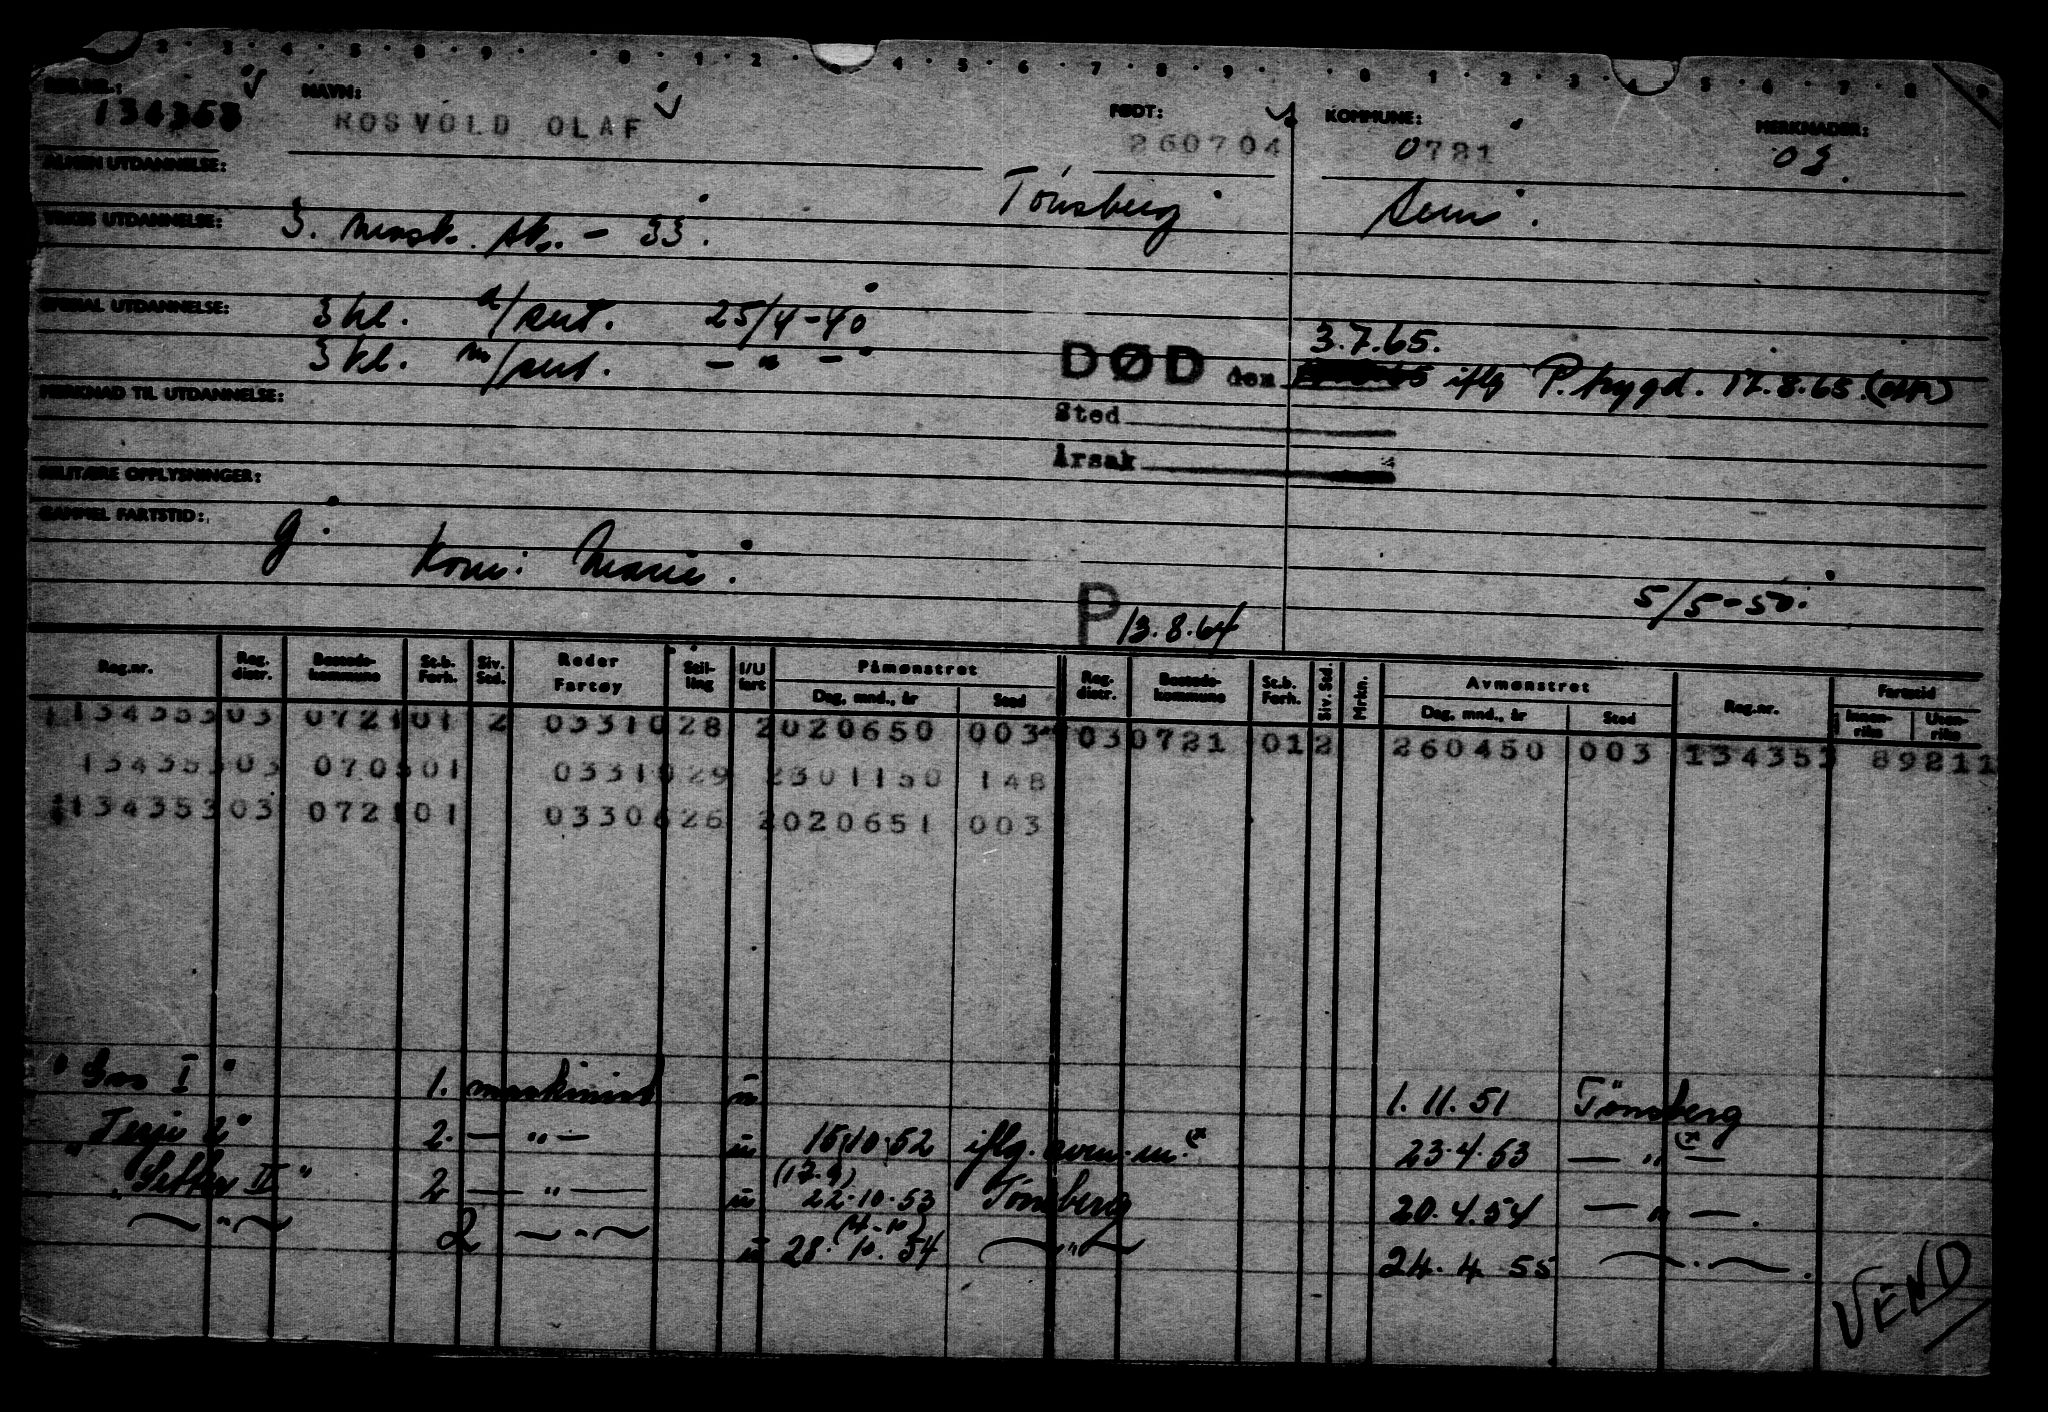 2 · 3 · 4 · 5 · 6 · 9 · · 0 · 1 · 2 · 3 4 · 5 · 6 · 7 · 8 · 9 · · 0 1 · 2 · 3 · 4 · 5 · 6 · 7 · 8 · 9
REG.NR.: NAVN: FØDT: KOMMUNE: MERKNADER:
134353 ROSVOLD OLAF 260704 0721 03.
ALMEN UTDANNELSE: Tønsberg Sem.
YRKES UTDANNELSE: 3. mask. sk. - 33.
SPESIAL UTDANNELSE: 3 kl. d/sert. 25/4-40
3 kl. m/sert. - " -
3.7.65.
DØD den iflg P.trygd. 17.8.65.
MERKNAD TIL UTDANNELSE:
Sted
Årsak
MILITÆRE OPPLYSNINGER:
GAMMEL FARTSTID:
g. Kone: Marie.
P 13.8.64 5/5-50.
Reg.nr. Reg. distr. Bosteds-kommune St.b. Forh. Siv. Std. Reder Fartøy Stil-ling I/U fart Påmønstret Dag, mnd., år Sted Reg. distr. Bosteds-kommune St.b. Forh. Siv. Std. Mrkn. Avmønstret Dag, mnd., år Sted Reg.nr. Fartstid Innen-riks Uten-riks
134353 03 0721 01 2 03310 28 2 020650 003 03 0721 01 2 260450 003 134353 89211
134353 03 0705 01 03310 29 2 301150 148
134353 03 0721 01 03306 26 2 020651 003
"Gos I" 1. maskinist u 1. 11. 51 Tønsberg
"Terje 2" 2. — " — u 15.10.52 iflg. aven.m. (x 23.4.53 — " — (x
(17.9)
"Setter II" 2 — " — u 22.10.53 Tønsberg 20.4.54 — " — .
(4.10)
— " — 2 — " — u 28. 10. 54 — " — 24. 4 55 — " — .
VEND